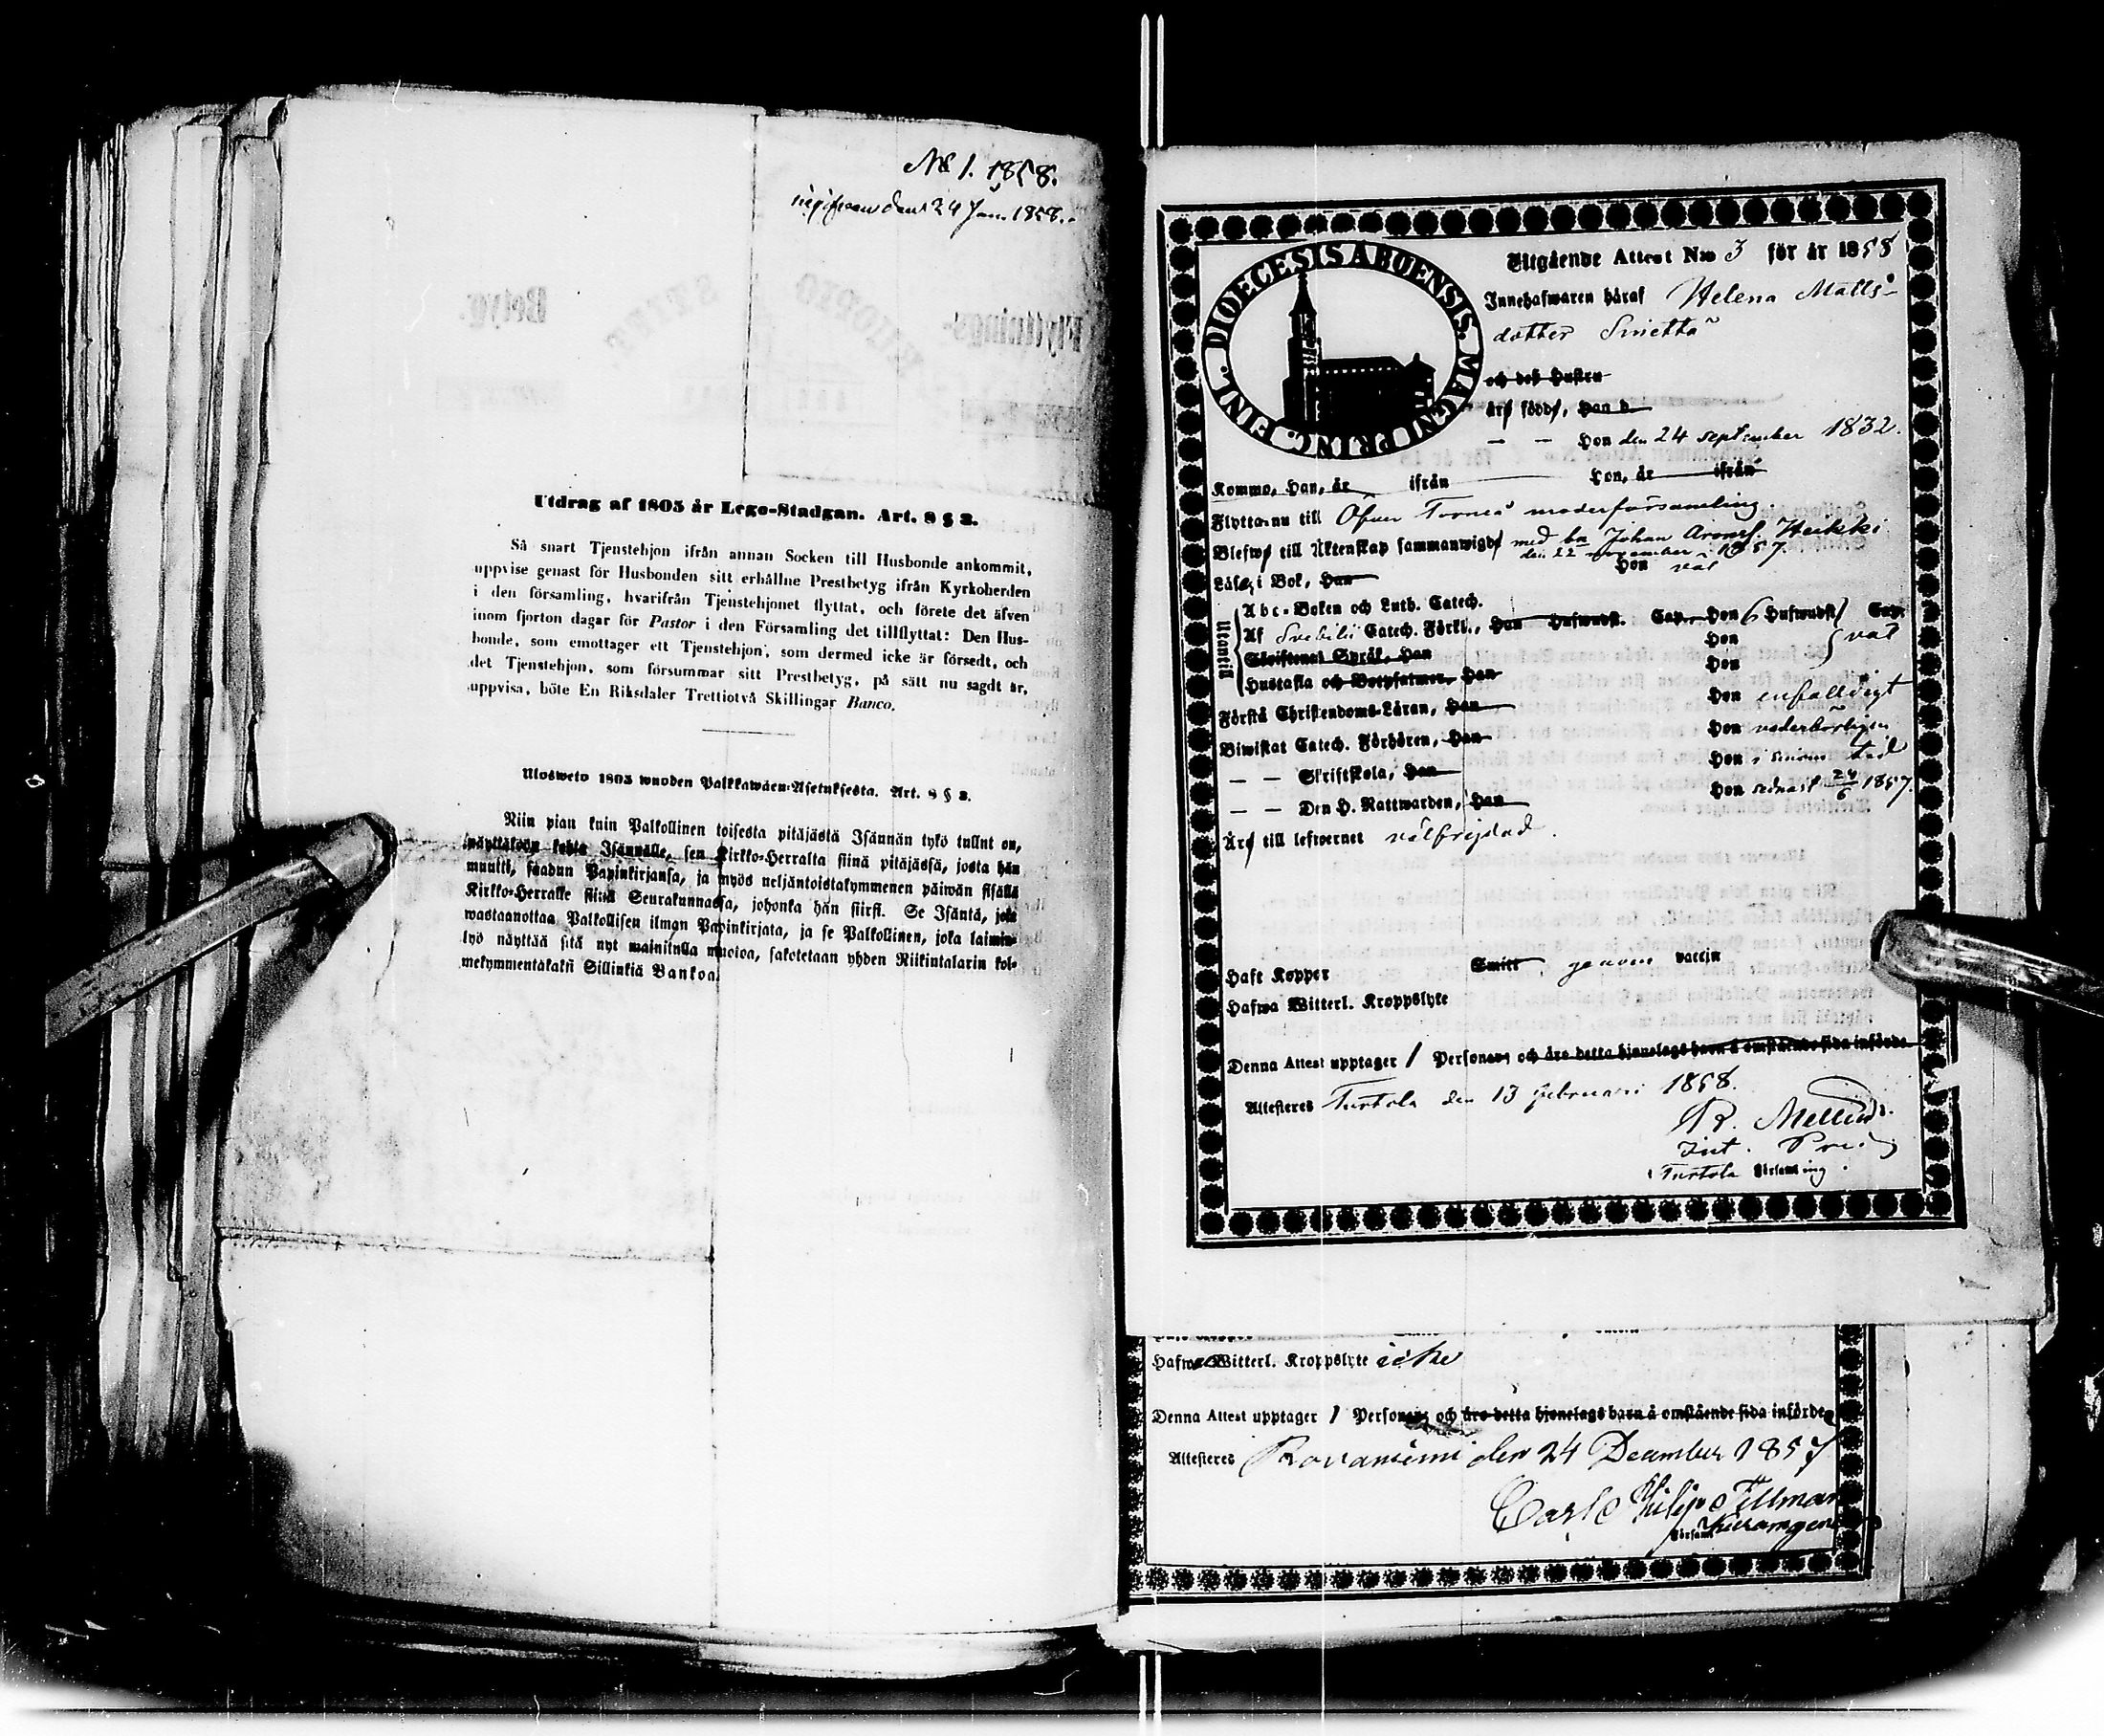 No 1. 1858.
den 24 Jan. 1858.
Flyttnings-
Betyg.
KUOPIO STIFT.
Utdrag af 1805 år Lego-Stadgan. Art. 8 § 2.
Så snart Tjenstehjon ifrån annan Socken till Husbonde ankommit,
uppvise genast för Husbonden sitt erhållne Prestbetyg ifrån Kyrkoherden
i den församling, hvarifrån Tjenstehjonet flyttat, och förete det äfven
inom fjorton dagar för Pastor i den Församling det tillflyttat: Den Hus-
bonde, som emottager ett Tjenstehjon, som dermed icke är försedt, och
det Tjenstehjon, som försummar sitt Prestbetyg, på sätt nu sagdt är,
uppvisa, böte En Riksdaler Trettiotvå Skillingar Banco.
Ulosweto 1805 wuoden Palkkawäen-Asetuksesta. Art. 8 § 2.
Niin pian kuin Palkollinen toisesta pitäjästä Isännän tykö tullut on,
näyttäköön kohta Isännälle, sen Kirkko-Herralta siinä pitäjässä, josta hän
muutti, saadun Papinkirjansa, ja myös neljäntoistakymmenen päiwän sisällä
Kirkko-Herralle siinä Seurakunnassa, johonka hän siirsi. Se Isäntä, joka
wastaanottaa Palkollisen ilman Papinkirjata, ja se Palkollinen, joka laimin-
lyö näyttää sitä nyt mainitulla muotoa, sakotetaan yhden Riikintalarin kol-
mekymmentäkaksi Sillinkiä Bankoa.
DIOECESIS ABOENSIS. MAGNI PRINC. FINL.
Utgående Attest No 3 för år 1858
Innehafwaren häraf Helena Matts-
dotter
och deß Hustru
äro födde, Han d.
— — Hon den 24 september 1832.
Komme, Han, år ifrån Hon, år ifrån
Flytta nu till Öfver Torneå moderförsamling
Blefwo till Äktenskap sammanwigde med bn Johan Aronss. Heikki
den 22 november 1857.
Läsa i Bok, Han Hon väl
Utantill
Abc-Boken och Luth. Catech.
Af Svebilii Catech. Förkl., Han Hufwudst. Cap. Hon 6 Hufwudst. Cap.
Skriftenes Språk, Han Hon väl
Hustafla och Botpsalmer, Han Hon
Förstå Christendoms-Läran, Han Hon enfalldigt
Biwistat Catech. Förhören, Han Hon vederbörligen
— — Skriftskola, Han Hon i sinom tid
— — Den H. Nattwarden, Han Hon sednast 24/6 1857.
Äro till lefwernet välfrejdad.
Haft Koppor Smitt, genom vaccin
Hafwa Witterl. Kroppslyte
Denna Attest upptager 1 Personer och äro detta hjonelags barn å omstående sida införde
Attesteras Turtola den 13 februari 1858.
Turtola Församling.
Hafwa Witterl. Kroppslyte icke
Denna Attest upptager 1 Personer och äro detta hjonelags barn å omstående sida införde
Attesteras Rovaniemi den 24 December 1857
Carl Philip Tillman